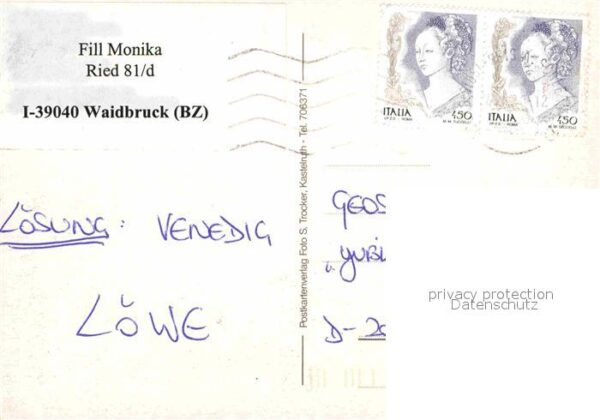 Fill Monika
Ried 81/d
I-39040 Waidbruck (BZ)
LÖSUNG: VENEDIG
LÖWE
Postkartenverlag Foto S. Trocker, Kastelruth - Tel. 706371
ITALIA 450
ITALIA 450
GEOS
"JUBI
D-20
privacy protection
Datenschutz